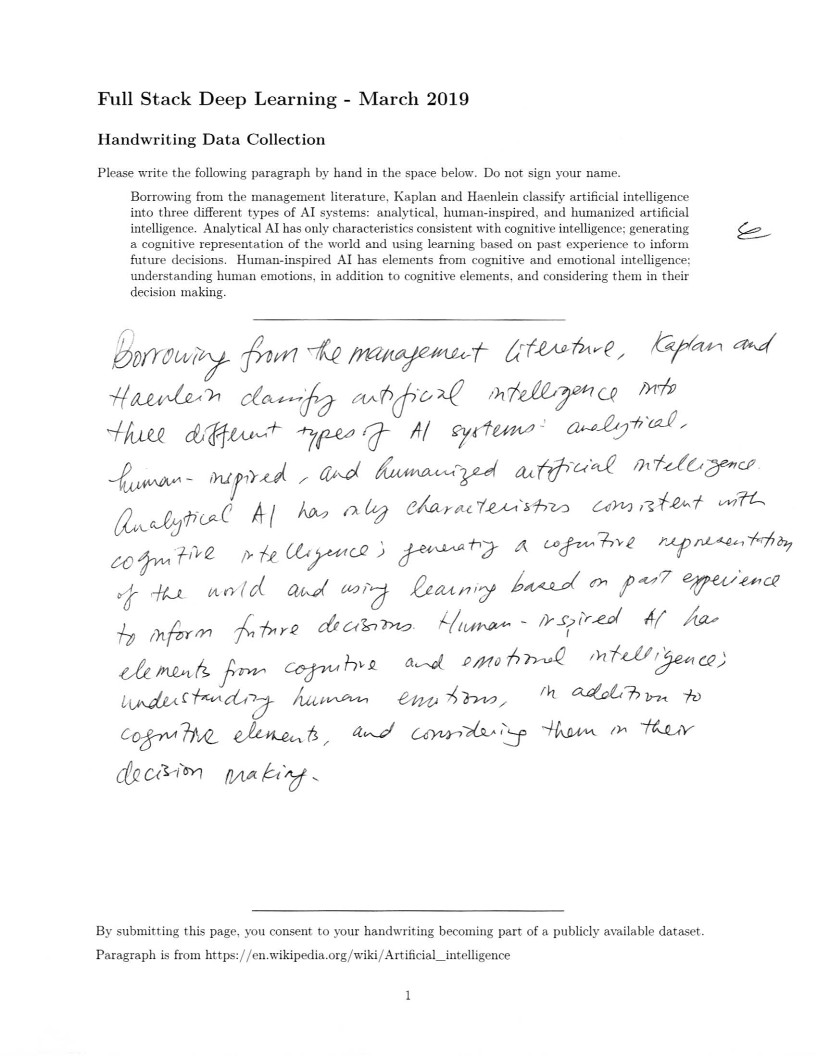 Full Stack Deep Learning - March 2019
Handwriting Data Collection
Please write the following paragraph by hand in the space below. Do not sign your name.
Borrowing from the management literature, Kaplan and Haenlein classify artificial intelligence
into three different types of AI systems: analytical, human-inspired, and humanized artificial
intelligence. Analytical AI has only characteristics consistent with cognitive intelligence; generating
a cognitive representation of the world and using learning based on past experience to inform
future decisions. Human-inspired AI has elements from cognitive and emotional intelligence;
understanding human emotions, in addition to cognitive elements, and considering them in their
decision making.
Borrowing from the management literature, Kaplan and
Haenlein classify artifical intelligence into
three different types of AI systems: analytical,
human-inspired, and humanized artificial intelligence.
Analytical AI has only characteristics consistent with
cognitive intelligence; generating a cognitive representation
of the world and using learning based on past experience
to inform future decisions. Human-inspired AI has
elements from cognitive and emotional intelligence;
understanding human emotions, in addition to
cognitive elements, and considering them in their
decision making.
By submitting this page, you consent to your handwriting becoming part of a publicly available dataset.
Paragraph is from https://en.wikipedia.org/wiki/Artificial_intelligence
1